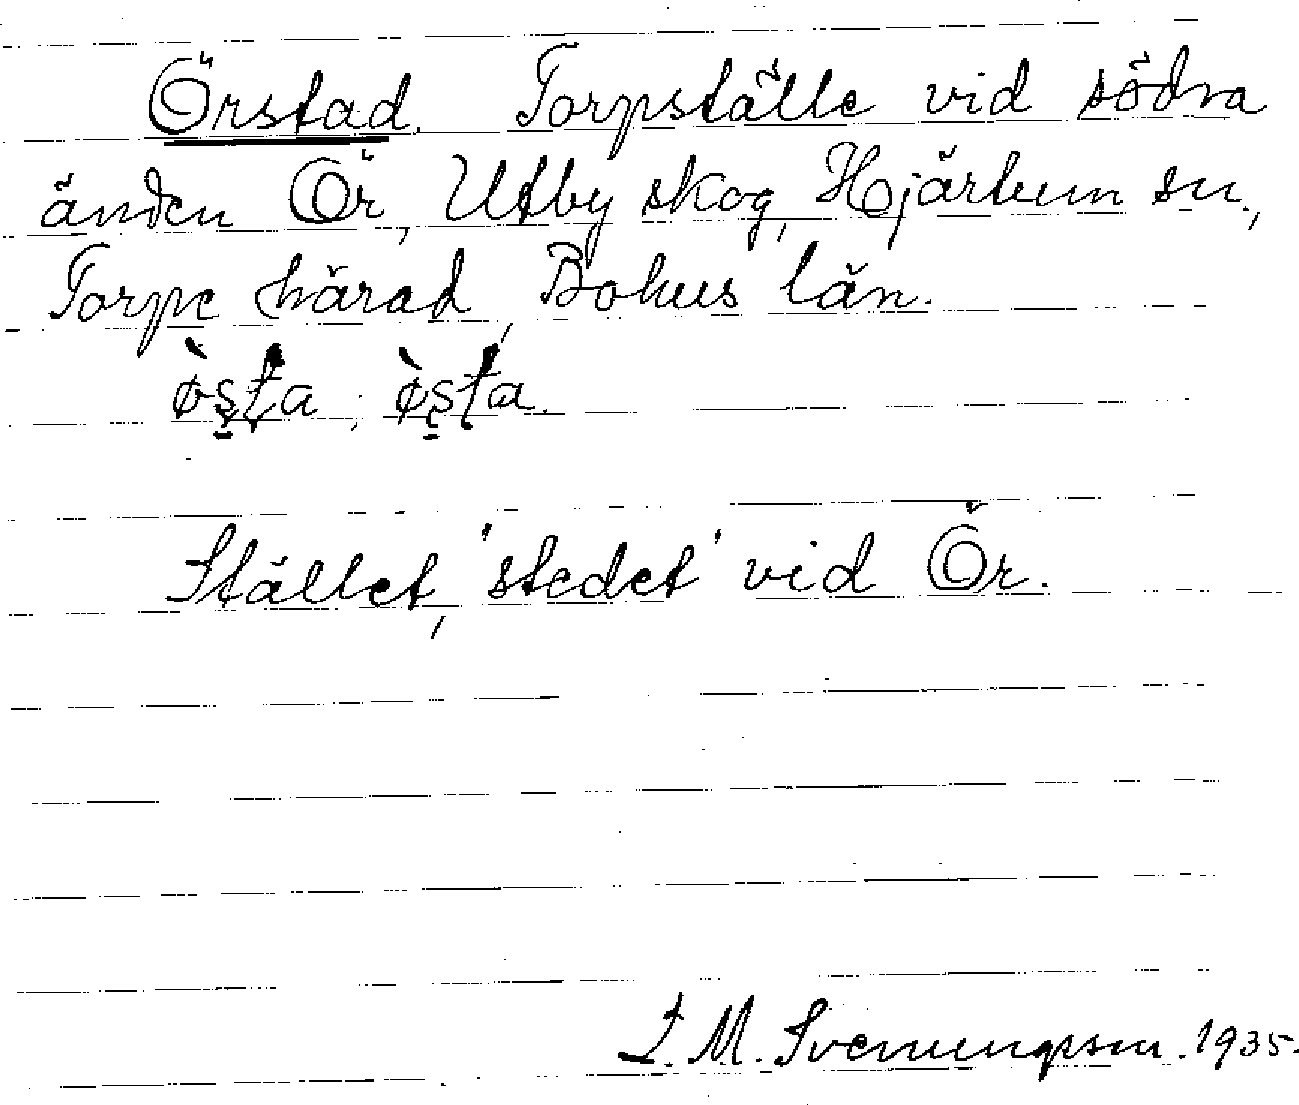 Örstad. Torpställe vid södra
änden Ör, Utby skog, Hjärtum sn.,
Torpe härad, Bohus län.
Stället, 'stedet' vid Ör.
L. M. Svenungsson. 1935.